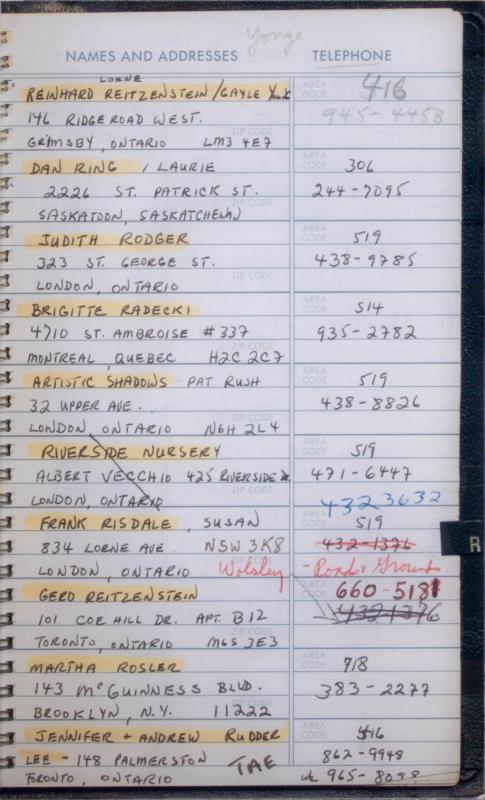 Yonge
NAMES AND ADDRESSES TELEPHONE
LORNE
REINHARD REITZENSTEIN / GAYLE AREA CODE 416
146 RIDGE ROAD WEST. 945-4458
ZIP CODE
GRIMSBY, ONTARIO LM3 4E7
DAN RING / LAURIE AREA CODE 306
2226 ST. PATRICK ST. 244-7095
ZIP CODE
SASKATOON, SASKATCHEWN
JUDITH RODGER AREA CODE 519
323 ST. GEORGE ST. 438-9785
ZIP CODE
LONDON, ONTARIO
BRIGITTE RADECKI AREA CODE 514
4710 ST. AMBROISE #337 935-2782
ZIP CODE
MONTREAL, QUEBEC H2C 2C7
ARTISTIC SHADOWS - PAT RUSH AREA CODE 519
32 UPPER AVE. 438-8826
ZIP CODE
LONDON, ONTARIO N6H 2L4
RIVERSIDE NURSERY AREA CODE 519
ALBERT VECCHIO 425 RIVERSIDE 471-6447
ZIP CODE
LONDON, ONTARIO 432 3632
FRANK RISDALE, SUSAN AREA CODE 519
834 LORNE AVE N5W 3K8 432-1376
LONDON, ONTARIO Wolsley - Road + Grounds
R
GERD REITZENSTEIN AREA CODE 660-5181
101 COE HILL DR. APT. B12 4321376
TORONTO, ONTARIO M6S 3E3
MARTHA ROSLER AREA CODE 718
143 McGUINNESS BLVD. 383-2277
ZIP CODE
BROOKLYN, N.Y. 11222
JENNIFER + ANDREW RUDDER AREA CODE 416
LEE - 148 PALMERSTON TAE 862-9948
TORONTO, ONTARIO wk 965-